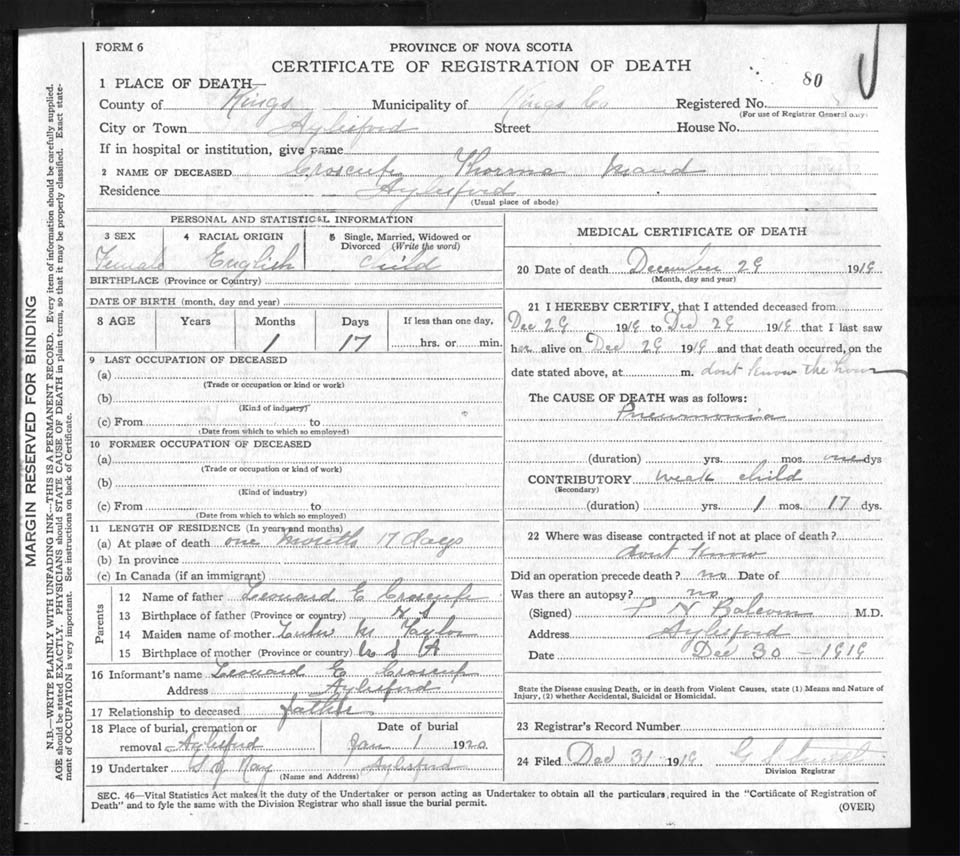 FORM 6
PROVINCE OF NOVA SCOTIA
CERTIFICATE OF REGISTRATION OF DEATH
80
1 PLACE OF DEATH—
County of Kings Municipality of Kings Co Registered No.
(For use of Registrar General only)
City or Town Aylesford Street House No.
If in hospital or institution, give name
2 NAME OF DECEASED Croscup Thorma Maud
Residence Aylesford
(Usual place of abode)
PERSONAL AND STATISTICAL INFORMATION
3 SEX 4 RACIAL ORIGIN 5 Single, Married, Widowed or Divorced (Write the word)
Female English Child
BIRTHPLACE (Province or Country)
DATE OF BIRTH (month, day and year)
8 AGE Years Months Days If less than one day,
1 17 hrs. or min.
9 LAST OCCUPATION OF DECEASED
(a)
(Trade or occupation or kind or work)
(b)
(Kind of industry)
(c) From to
(Date from which to which so employed)
10 FORMER OCCUPATION OF DECEASED
(a)
(Trade or occupation or kind of work)
(b)
(Kind of industry)
(c) From to
(Date from which to which so employed)
11 LENGTH OF RESIDENCE (In years and months)
(a) At place of death one month 17 days
(b) In province
(c) In Canada (if an immigrant)
Parents
12 Name of father Leonard E Croscup
13 Birthplace of father (Province or country) N S
14 Maiden name of mother M Taylor
15 Birthplace of mother (Province or country) U S A
16 Informant's name Leonard E Croscup
Address Aylesford
17 Relationship to deceased father
18 Place of burial, cremation or removal Aylesford
Date of burial
Jan 1 1920
19 Undertaker Aylesford
(Name and Address)
MEDICAL CERTIFICATE OF DEATH
20 Date of death December 29 1919
(Month, day and year)
21 I HEREBY CERTIFY, that I attended deceased from
Dec 29 1919 to Dec 29 1919 that I last saw
her alive on Dec 29 1919 and that death occurred, on the
date stated above, at m. dont know the hour
The CAUSE OF DEATH was as follows:
Pneumonia
(duration) yrs. mos. one dys
CONTRIBUTORY weak child
(Secondary)
(duration) yrs. 1 mos. 17 dys.
22 Where was disease contracted if not at place of death?
dont know
Did an operation precede death? no Date of
Was there an autopsy? no
(Signed) P N Balcom M.D.
Address Aylesford
Date Dec 30 - 1919
State the Disease causing Death, or in death from Violent Causes, state (1) Means and Nature of
Injury, (2) whether Accidental, Suicidal or Homicidal.
23 Registrar's Record Number
24 Filed Dec 31 1919
Division Registrar
SEC. 46—Vital Statistics Act makes it the duty of the Undertaker or person acting as Undertaker to obtain all the particulars required in the "Certificate of Registration of
Death" and to fyle the same with the Division Registrar who shall issue the burial permit.
(OVER)
MARGIN RESERVED FOR BINDING
N.B.—WRITE PLAINLY WITH UNFADING INK—THIS IS A PERMANENT RECORD. Every item of information should be carefully supplied.
AGE should be stated EXACTLY. PHYSICIANS should STATE CAUSE OF DEATH in plain terms, so that it may be properly classified. Exact state-
ment of OCCUPATION is very important. See instructions on back of Certificate.